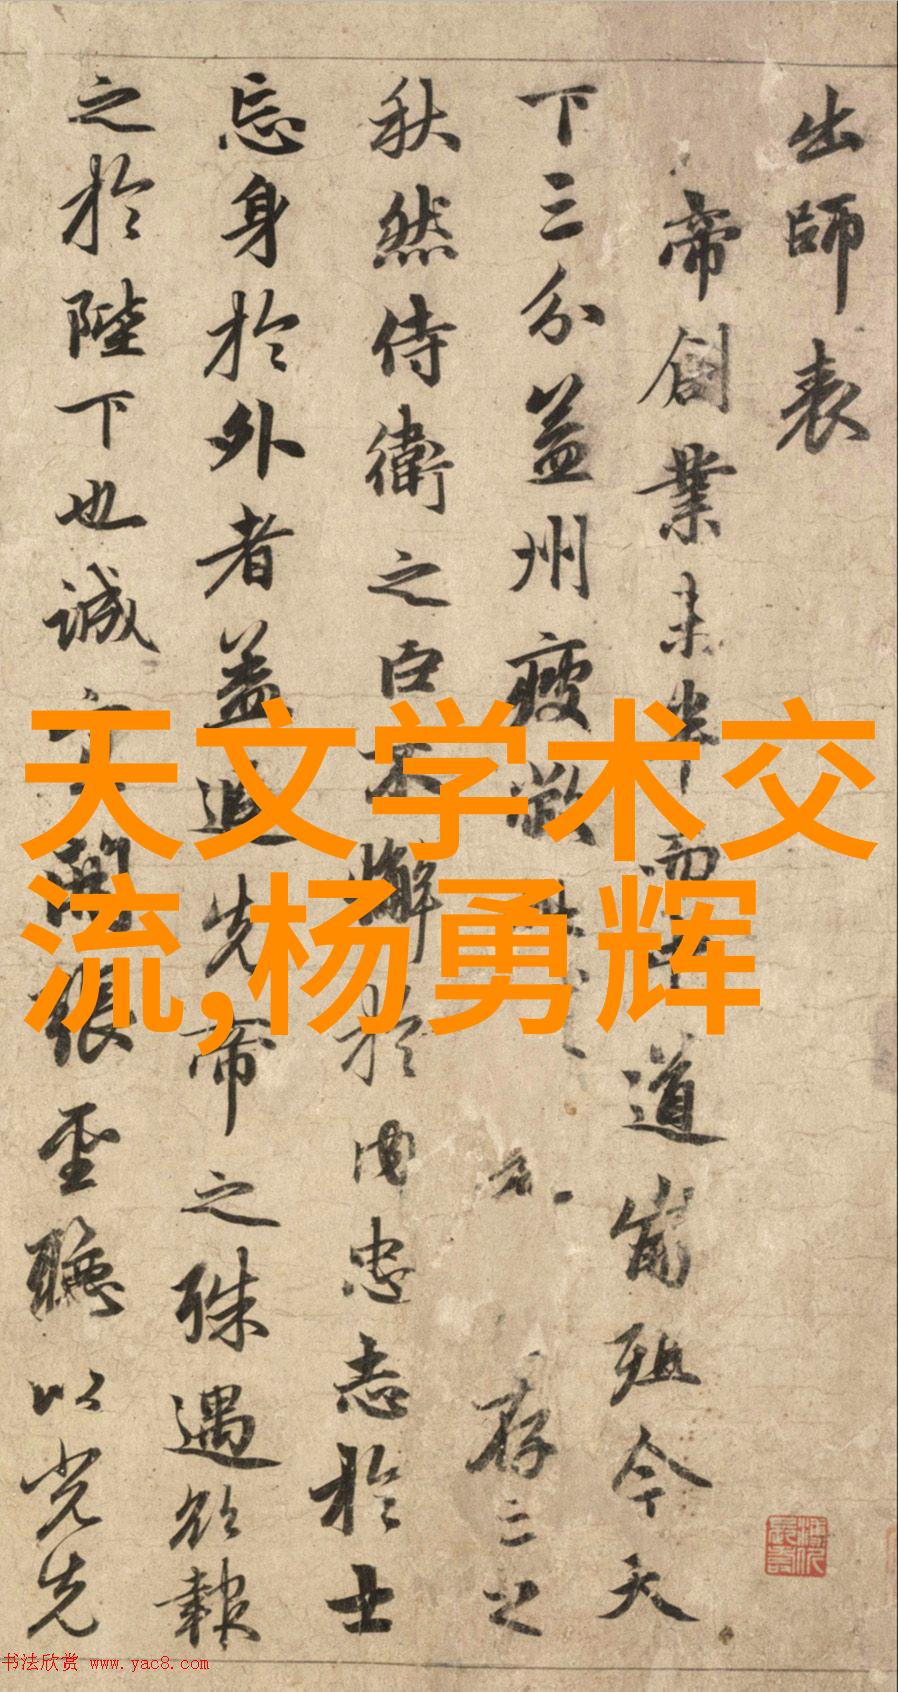 出師表
帝創業未半而中道崩殂今天
下三分益州疲敝存亡之
秋然侍衛之臣不懈於内忠志於士
忘身於外者蓋追先帝之殊遇欲報
之於陛下也誠宜開張聖聽以光先
天文学术交
流,杨勇辉
书法欣赏 www.yac8.com